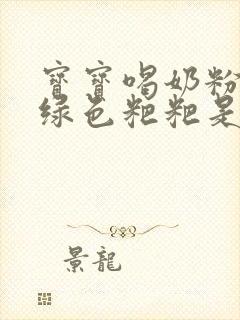 寶寶喝奶粉
綠色粑粑是
景龍